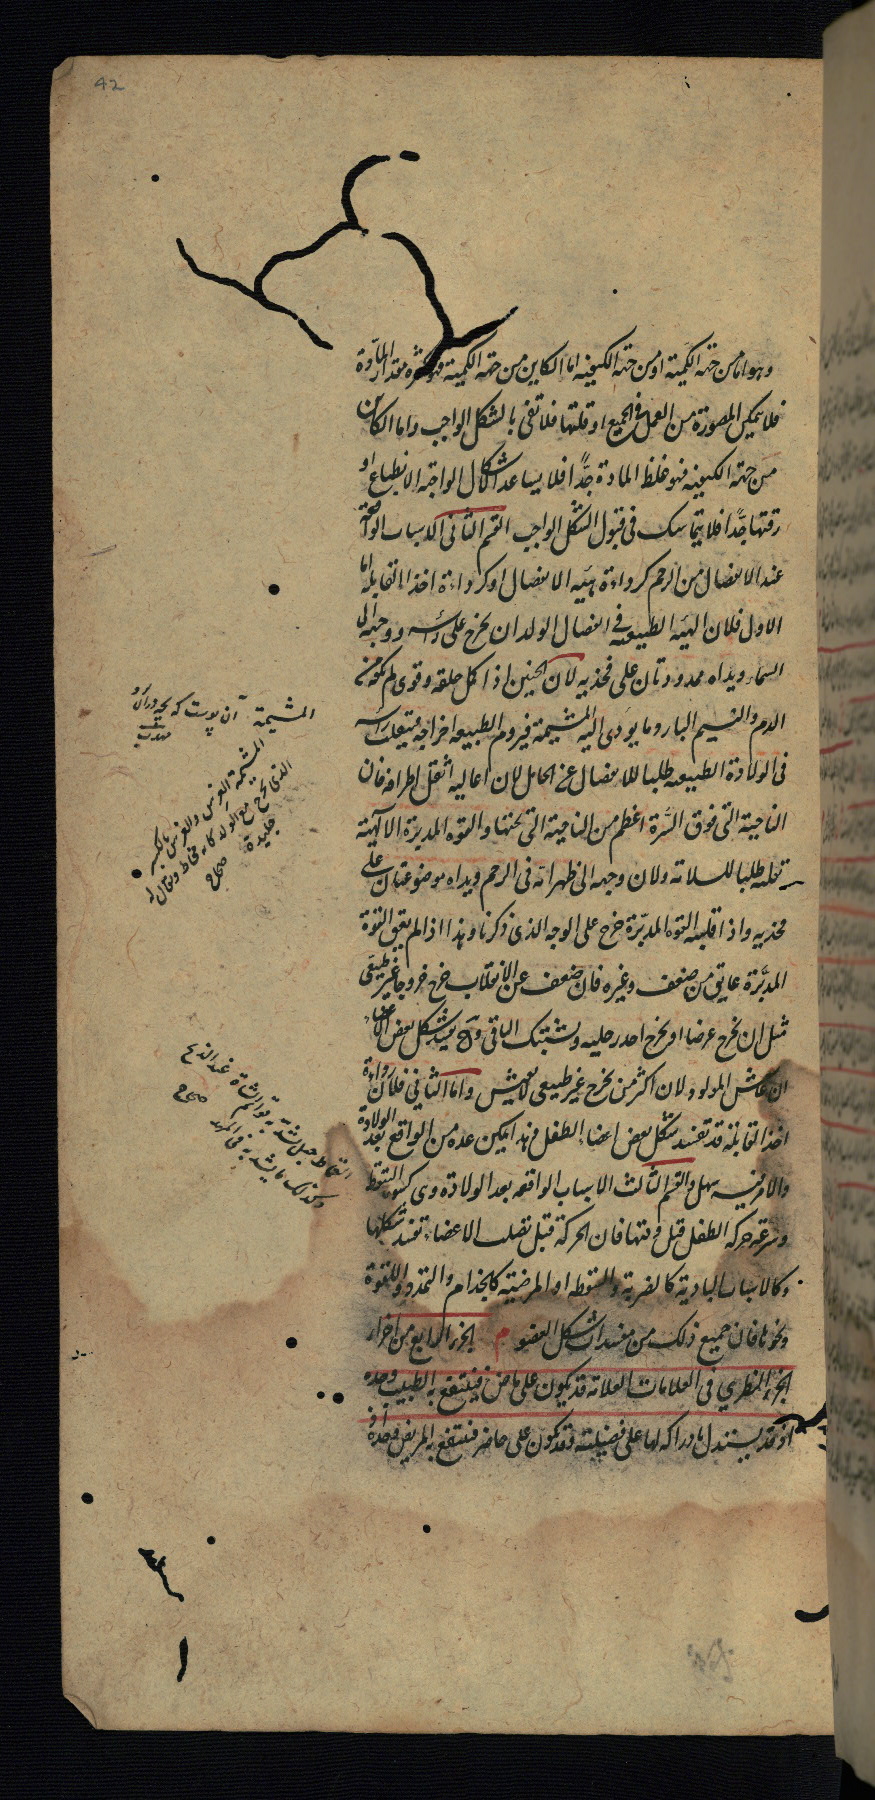 42
وهو اما من جهة الكمية او من جهة الكيفية اما الكاين من جهة الكمية فهو كثرة مقدار المادة
فلا يتمكن المصورة من العمل فى الجميع او قلتها فلا تفى بالشكل الواجب واما الكاين
من جهة الكيفية فهو غلظ المادة جدًّا فلا يساعد الاشكال الواجبة الانطباع او
رقتها جدًّا فلا يتماسك فى قبول الشكل الواجب القسم الثانى الاسباب الواقعة
عند الانفصال من الرحم كرداءة هيئة الانفصال او كرداءة اخذ القابلة اما
الاول فلان الهيئة الطبيعية فى انفصال الولد ان يخرج على رأسه ووجهه الى
السماء ويداه ممدودتان على فخذيه لان الجنين اذا كمل خلقه وقوى لم يكفه
الدم والنسيم البارد وما يؤدى اليه المشيمة فيروم الطبيعة اخراجه فينقلب رأسه
فى الولادة الطبيعية طلبا للانفصال عن الحامل لان اعاليه اثقل اطرافه فان
الناحية التى فوق السُّرة اعظم من الناحية التى تحتها والقوة المدبرة الالهية
تقلبه طلبا للسلامة ولان وجهه الى ظهر امه فى الرحم ويداه موضوعتان على
فخذيه واذا قلبته القوة المدبّرة خرج على الوجه الذى ذكرنا وهذا اذا لم يعق القوة
المدبّرة عايق من ضعف وغيره فان ضعف عن الانقلاب خرج خروجا غير طبيعى
مثل ان يخرج عرضا او يخرج احد رجليه ويشتبك الباقى وح يفسد شكل بعض الاعضاء
ان عاش المولود لان اكثر من يخرج غير طبيعى لا يعيش واما الثانى فلان رداءة
اخذ القابلة قد تفسد شكل بعض اعضاء الطفل وهذا يمكن عده من الواقع بعد الولادة
والامر فيه سهل والقسم الثالث الاسباب الواقعة بعد الولادة وهى كسوء التقميط
وسرعة حركة الطفل قبل وقتها فان الحركة قبل تصلب الاعضاء تفسد شكلها
وكالاسباب البادية كالضربة والسقطة او المرضية كالجذام والتمدد واللقوة
ونحوها فان جميع ذلك من مفسدات شكل العضو م الجزء الرابع من اجزاء
الجزء النظري فى العلامات العلامة قد يكون على ماض فينتفع به الطبيب وحده
اذ قد يستدل بادراكه لها على فضيلته وقد يكون على حاضر فينتفع به المريض وحده
المشيمة آن پوست که بچه دران بود
مهذب
المشيمة الغرس والغرس بالكسر
الذى يخرج مع الولد كانه مخاط ويقال له
جليدة صحاح
القماط حبل يشد به قوائم الشاة عند الذبح
وكذلك ما يشد به فى المهد صحاح